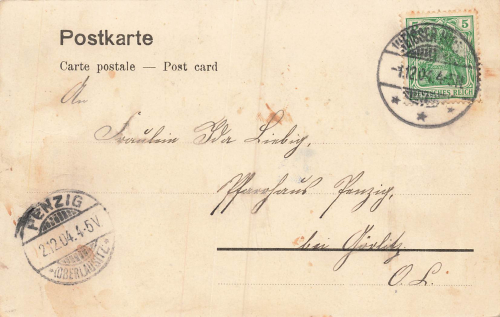 Postkarte
Carte postale — Post card
An
Fräulein Ida Liebig,
Pfarrhaus Penzig,
bei Görlitz
O. L.
5
DEUTSCHES REICH
1.12.04. 4-5
PENZIG
2.12.04. 4-5V
*(OBERLAUSITZ)*